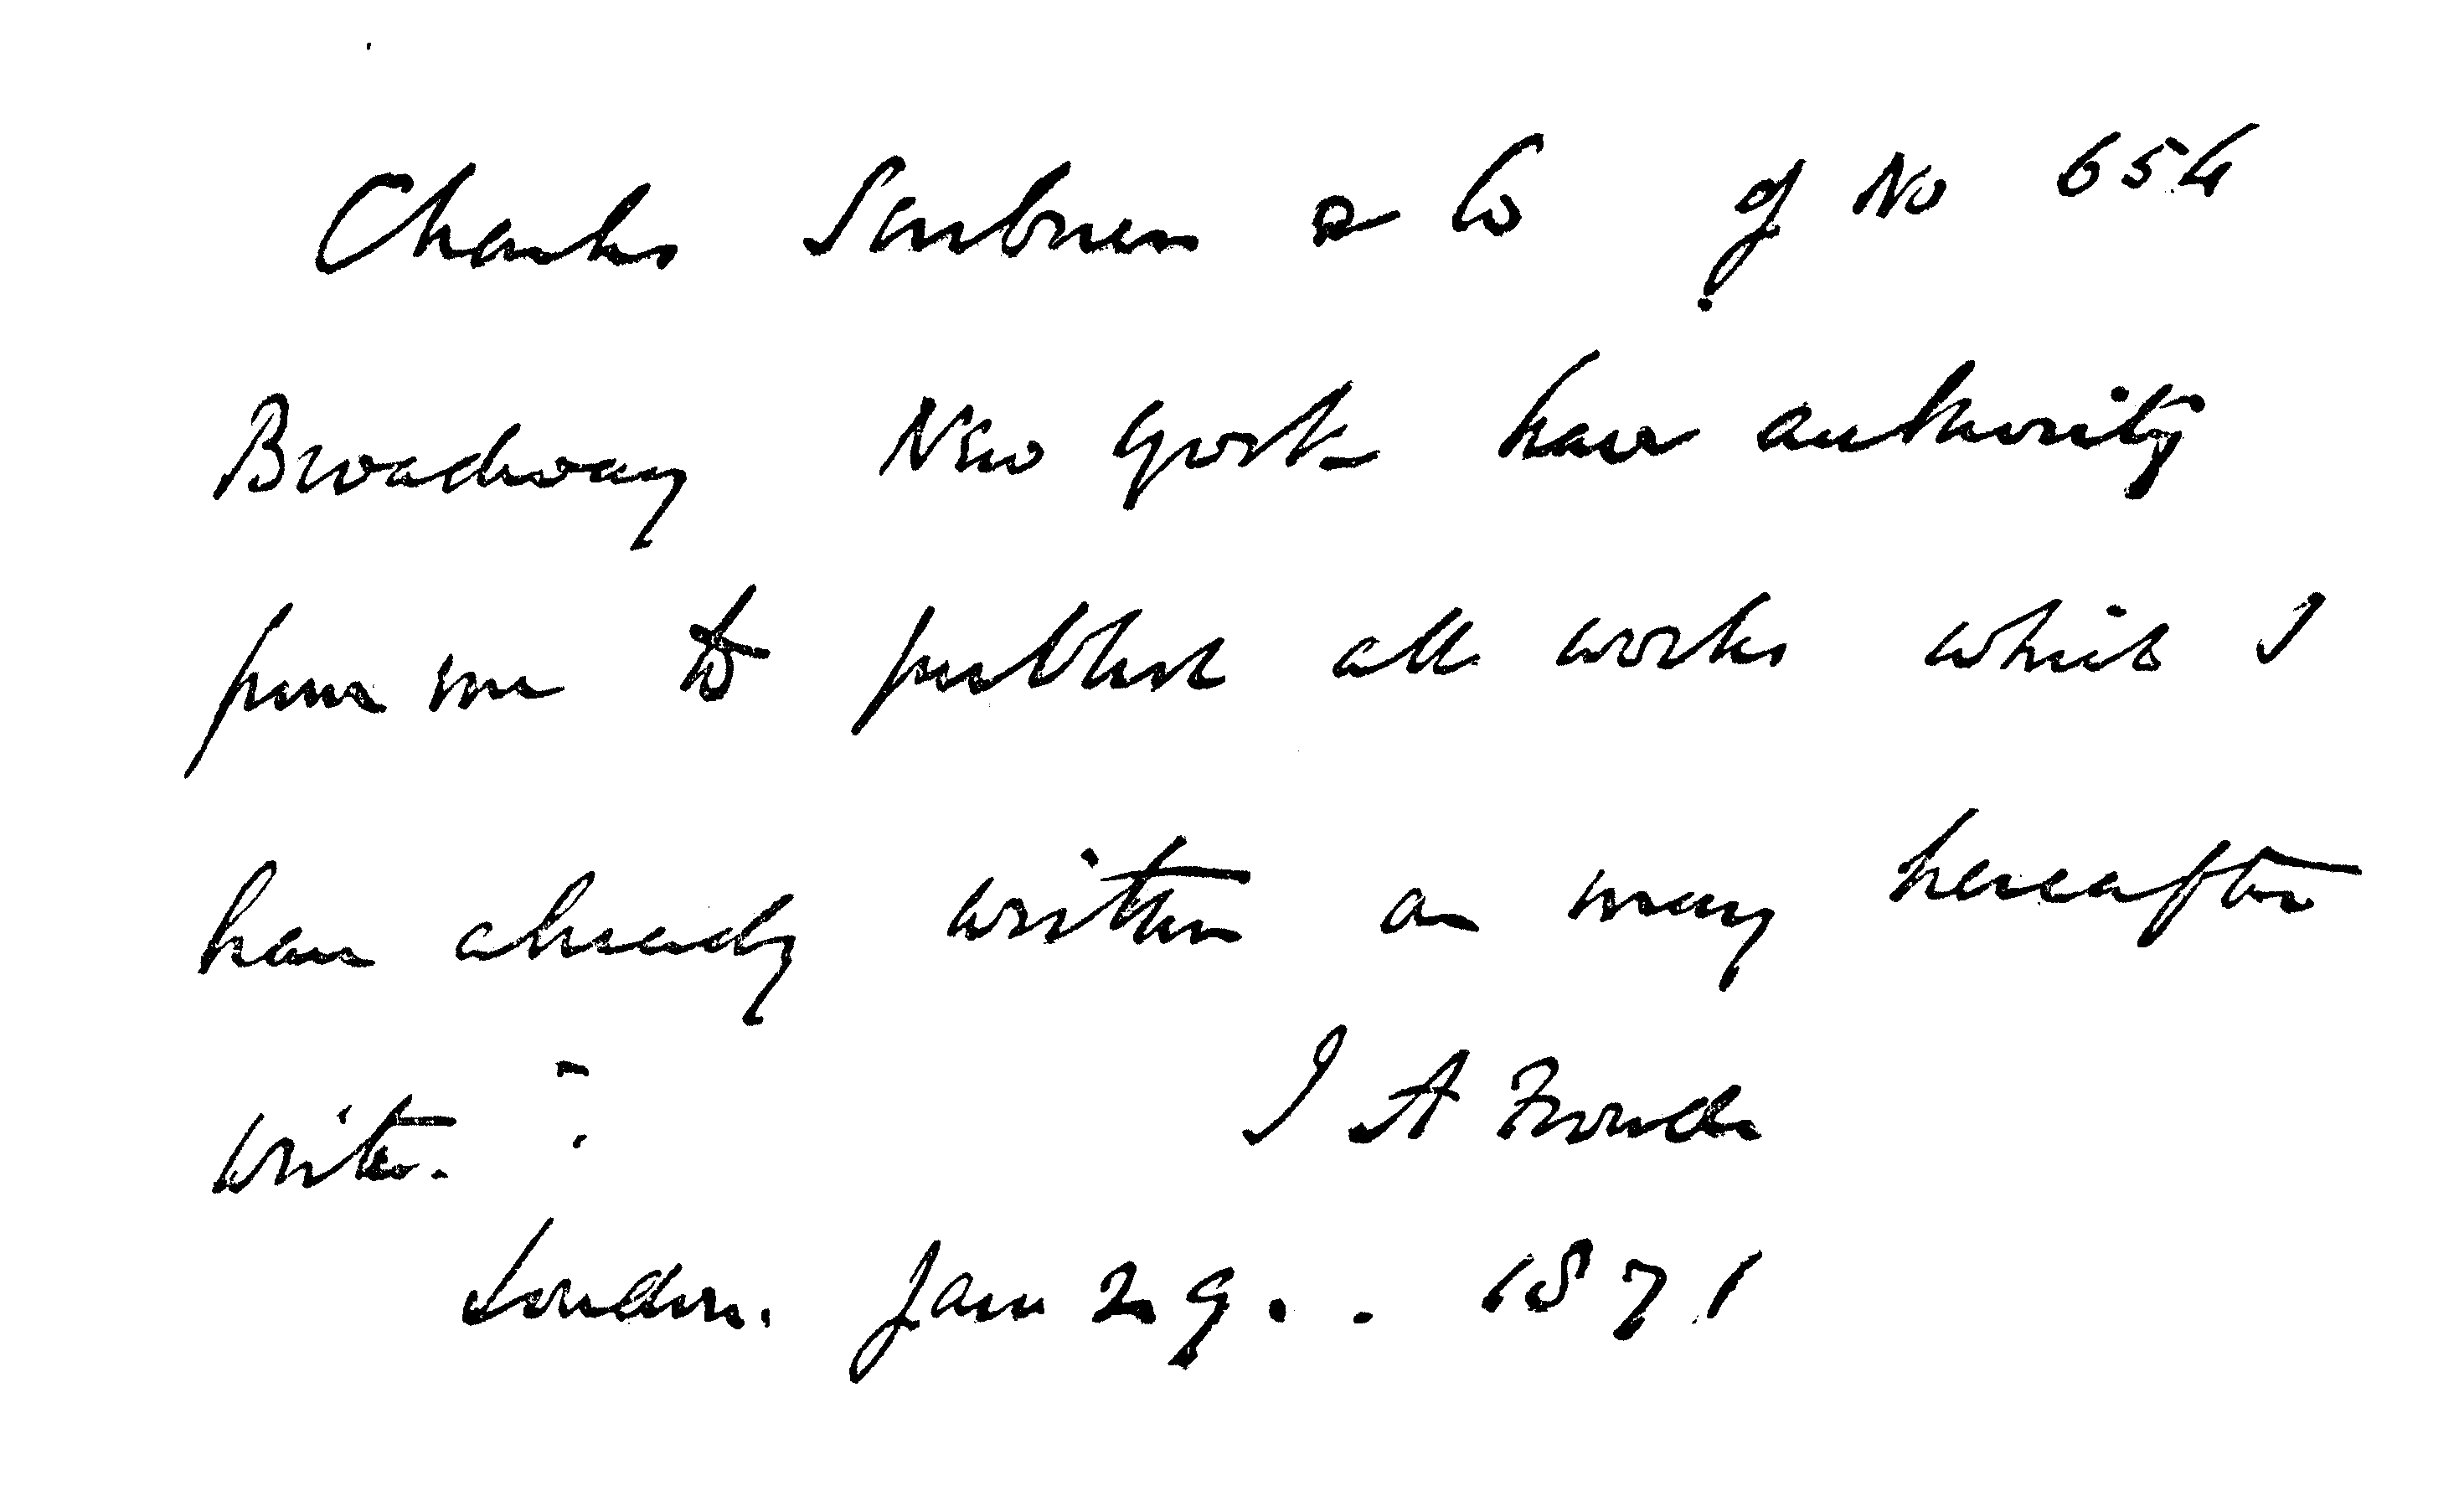 Charles Scribner & Co of No 654
Broadway New York have authority
from me to publish all works which I
have already written or may hereafter
write.
J A Froude
London. Jan 29. . 1871